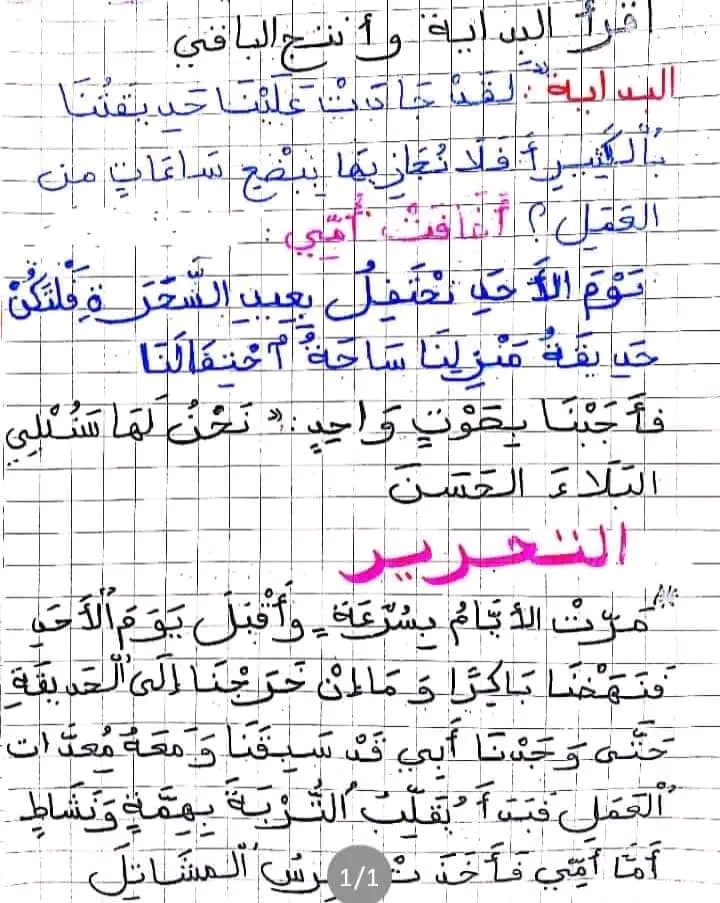 اقرأ البداية وأنتج الباقي
البداية: "لَقَدْ جَادَتْ عَلَيْنَا حَدِيقَتُنَا
بِالْكَثِيرِ أَفَلَا نُجَازِيهَا بِبِضْعِ سَاعَاتٍ من
العَمَلِ؟ أَضَافَتْ أُمِّي:
يَوْمَ الأَحَدِ نَحْتَفِلُ بِعِيدِ الشَّجَرَةِ فِلْتَكُنْ
حَدِيقَةُ مَنْزِلِنَا سَاحَةُ احْتِفَالَنَا
فَأَجَبْنَا بِصَوْتٍ وَاحِدٍ: «نَحْنُ لَهَا سَنُبْلِي
البَلَاءَ الحَسَنَ
التحرير
"مَرَّتْ الأَيَّامُ بِسُرْعَةٍ وَأَقْبَلَ يَوَمَ الْأَحَدِ
فَنَهَضْنَا بَاكِرًا وَمَا إِنْ خَرَجْنَا إِلَى الْحَدِيقَةِ
حَتَّى وَجَدْنَا أَبِي قَدْ سَبِقَنَا وَمَعَهُ مُعِدَّات
الْعَمَلِ فَبَدَأَ يُقَلِّبُ التُّرْبَةَ بِهِمَّةٍ وَنَشَاطٍ
أَمَّا أُمِّي فَأَخَذَتْ الْمَشَاتِلَ
1/1